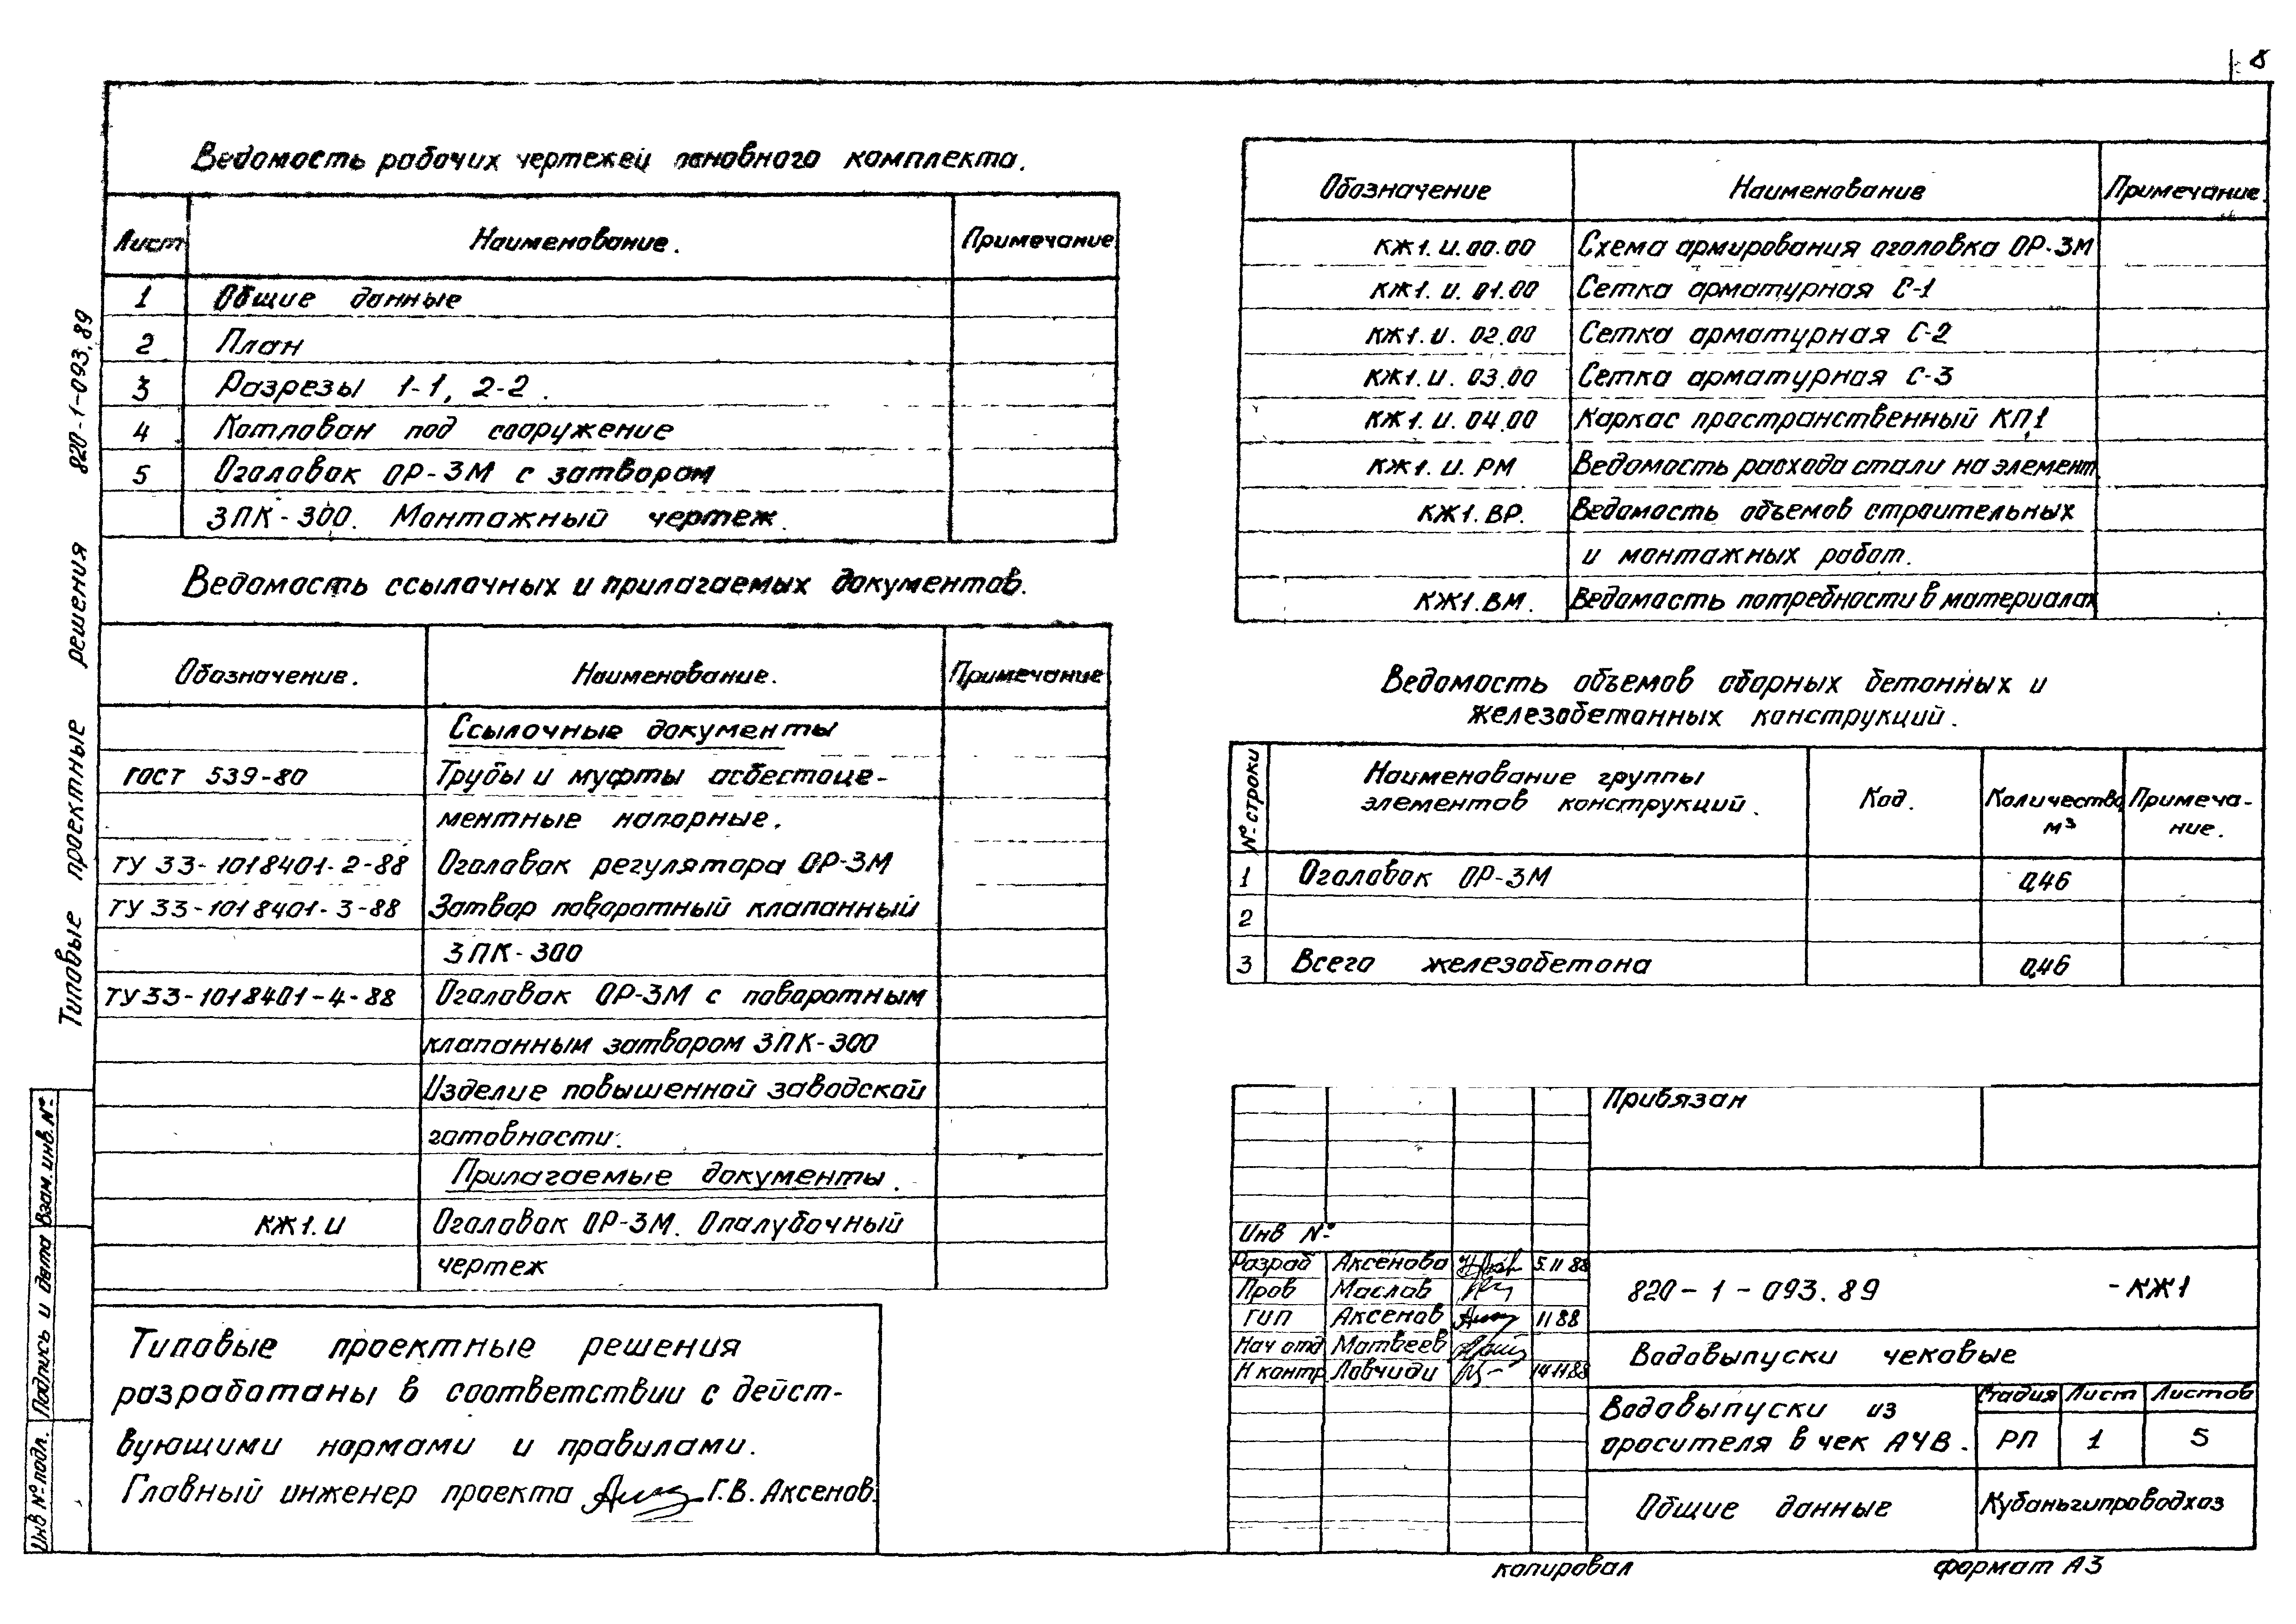 8
Ведомость рабочих чертежей основного комплекта.
Лист Наименование. Примечание
1 Общие данные
2 План
3 Разрезы 1-1, 2-2.
4 Котлован под сооружение
5 Оголовок ОР-3М с затвором
ЗПК-300. Монтажный чертеж.
Ведомость ссылочных и прилагаемых документов.
Обозначение. Наименование. Примечание
Ссылочные документы
ГОСТ 539-80 Трубы и муфты асбестоце-
ментные напорные.
ТУ 33-1018401-2-88 Оголовок регулятора ОР-3М
ТУ 33-1018401-3-88 Затвор поворотный клапанный
ЗПК-300
ТУ 33-1018401-4-88 Оголовок ОР-3М с поворотным
клапанным затвором ЗПК-300
Изделие повышенной заводской
готовности.
Прилагаемые документы.
КЖ1.И Оголовок ОР-3М. Опалубочный
чертеж
Типовые проектные решения
разработаны в соответствии с дейст-
вующими нормами и правилами.
Главный инженер проекта Г.В. Аксенов.
Обозначение Наименование Примечание.
КЖ1.И.00.00 Схема армирования оголовка ОР-3М
КЖ1.И.01.00 Сетка арматурная С-1
КЖ1.И.02.00 Сетка арматурная С-2
КЖ1.И.03.00 Сетка арматурная С-3
КЖ1.И.04.00 Каркас пространственный КП1
КЖ1.И.РМ Ведомость расхода стали на элемент
КЖ1.ВР. Ведомость объемов строительных
и монтажных работ.
КЖ1.ВМ. Ведомость потребности в материалах
Ведомость объемов сборных бетонных и
железобетонных конструкций.
№ строки Наименование группы элементов конструкций. Код. Количество м³ Примеча-ние.
1 Оголовок ОР-3М 0,46
2
3 Всего железобетона 0,46
Привязан
Инв №
Разраб Аксенова 5.11 88
Пров Маслов
ГИП Аксенов 11 88
Нач отд Матвеев
Н контр Ловчиди 14.11.88
820-1-093.89 -КЖ1
Водовыпуски чековые
Водовыпуски из
оросителя в чек АЧВ.
Стадия Лист Листов
РП 1 5
Общие данные
Кубаньгипроводхоз
копировал формат А3
Типовые проектные решения 820-1-093.89
Инв № подл. Подпись и дата Взам. инв. №